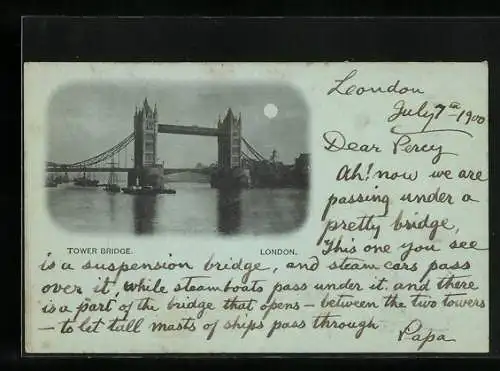 London
July 7th 1900
Dear Percy
Ah! now we are
passing under a
pretty bridge,
This one you see
is a suspension bridge, and steam cars pass
over it, while steamboats pass under it, and there
is a part of the bridge that opens - between the two towers
- to let tall masts of ships pass through
Papa
TOWER BRIDGE.
LONDON.